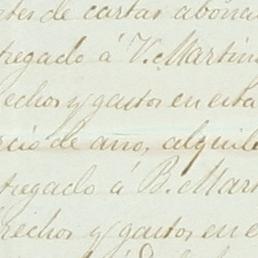 tes de cartas abona
tregado á V. Martin
echos y gastos en esta
cio de ano, alquile
tregado á B. Mart
rechos y gastos en e